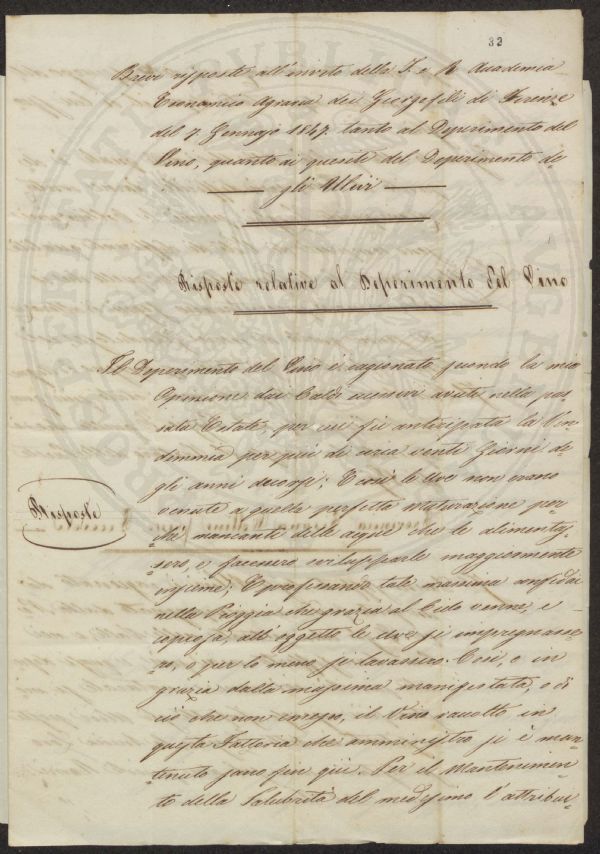 33
Brevi risposte all'invito della I. e R. Accademia
Economico Agraria dei Georgofili di Firenze
del 7. Gennajo 1847. tanto al Deperimento del
Vino, quanto ai quesiti del Deperimento de-
gli Ulivi
Risposte relative al Deperimento del Vino
Il Deperimento del Vino è cagionato secondo la mia
Opinione dai Caldi eccessivi avuti nella pas-
sata Estate per cui fu anticipata la Ven-
dimmia per più di circa venti Giorni de-
gli anni decorsi; E così le Uve non erano
venute a quella perfetta maturazione per-
Risposte
chè mancante delle acque che le alimentas-
sero, e facessero svilupparle maggiormente
insieme; E professando tale massima confidai
nella Pioggia che grazia al Cielo venne, e
copiosa, all'oggetto le Uve si impregnasse-
ro, o per lo meno si lavassero. Così, o in
grazia dalla massima manifestata, o di
ciò che non, il Vino raccolto in
questa Fattoria che amministro si è man-
tenuto sano fin qui. Per il Mantenimen-
to della Salubrità del medesimo l'attribui-